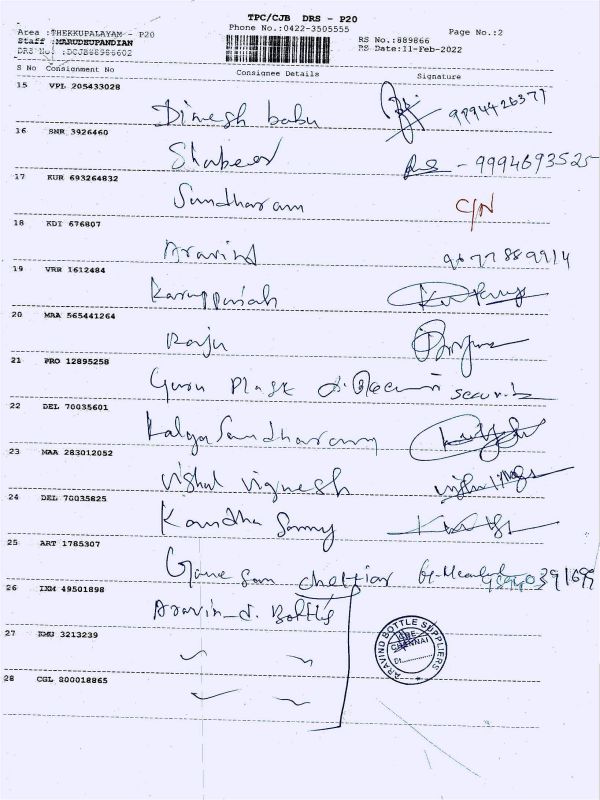 TPC/CJB DRS - P20
Phone No.:0422-3505555
Page No.:2
Area :THEKKUPALAYAM - P20
Staff :MARUDHUPANDIAN
RS No.:889866
RS Date:11-Feb-2022
S No Consignment No Consignee Details Signature
15 VPL 205433028
Dinesh babu
16 SNR 3926460
Shabeer - 9994693525
17 KUR 693264832
Sundharam C/N
18 KDI 676807
Aravind 9677889914
19 VRR 1612484
Karuppaiah
20 MAA 565441264
Raju
21 PRO 12895258
Guru Plask
22 DEL 70035601
Kalyasundharam
23 MAA 283012052
Vishal vignesh
24 DEL 70035825
Kandha Samy
25 ART 1785307
Ganesan chettiar
26 IXM 49501898
Aravind Bottles
27 KMU 3213239
28 CGL 800018865
ARAVIND BOTTLE SUPPLIERS
CHENNAI